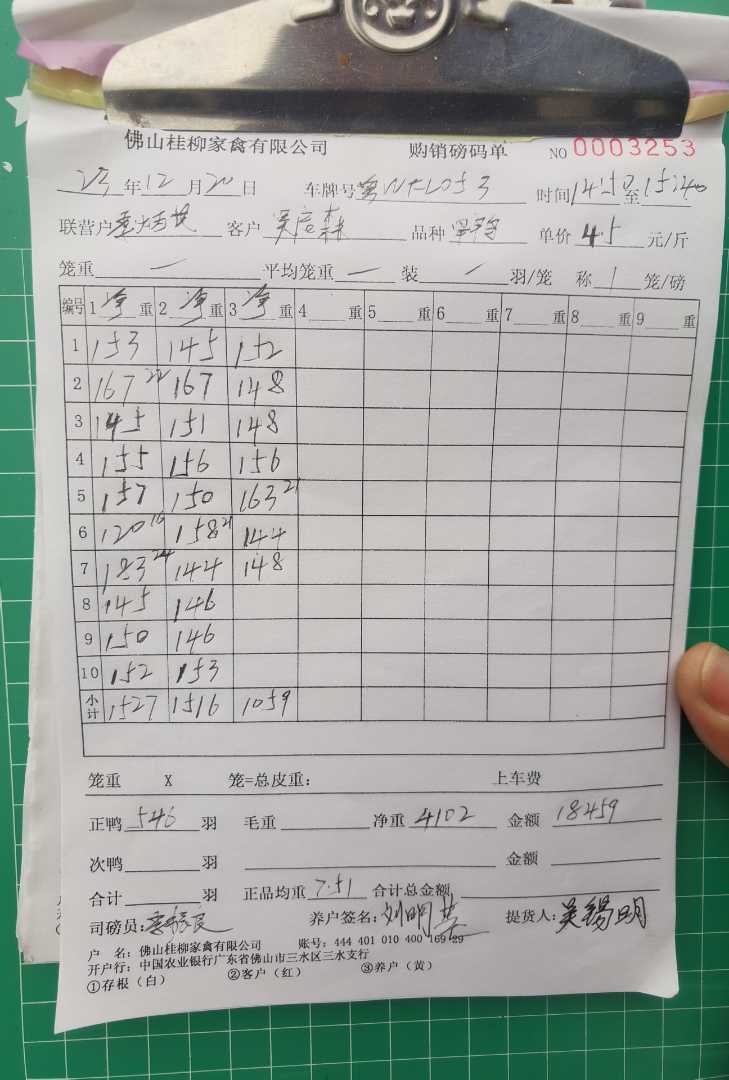 佛山桂柳家禽有限公司 购销磅码单 NO 0003253
23年12月20日 车牌号 时间1450至1540
联营户 客户 吴启森 品种 单价 4.5 元/斤
笼重 — 平均笼重 — 装 / 羽/笼 称 1 笼/磅
编号 1净重 2净重 3净重 4重 5重 6重 7重 8重 9重
1 153 145 152
2 167 22 167 148
3 145 151 148
4 155 156 156
5 157 150 163 21
6 120 16 158 21 144
7 183 24 144 148
8 145 146
9 150 146
10 152 153
小计 1527 1516 1059
笼重 X 笼=总皮重： 上车费
正鸭 546 羽 毛重 净重 4102 金额 18459
次鸭 羽 金额
合计 羽 正品均重 7.51 合计总金额
司磅员: 养户签名: 刘明 提货人: 吴锡明
户 名: 佛山桂柳家禽有限公司 账号: 444 401 010 400 169 29
开户行: 中国农业银行广东省佛山市三水区三水支行
①存根（白） ②客户（红） ③养户（黄）